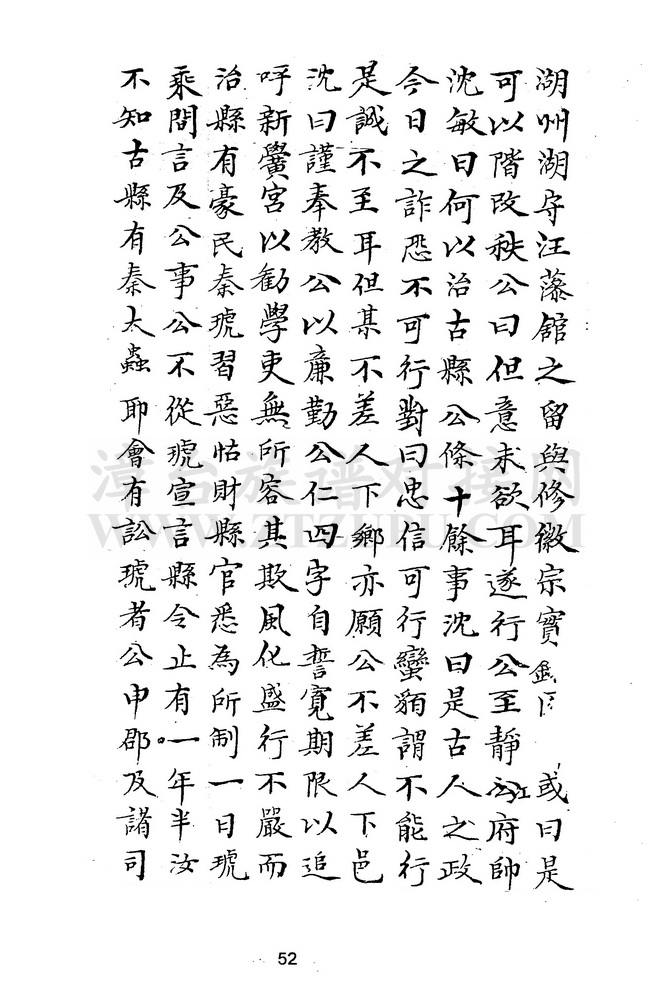 湖州湖守汪藻舘之留與修徽宗實 或曰是
可以階改秩公曰但意未欲耳遂行公至靜江府帥
沈敏曰何以治古縣公條十餘事沈曰是古人之政
今日之詐恐不可行對曰忠信可行蠻貊謂不能行
是誠不至耳但某不差人下鄉亦願公不差人下邑
沈曰謹奉教公以廉勤公仁四字自誓寬期限以追
呼新黌宮以勸學吏無所容其欺風化盛行不嚴而
治縣有豪民秦琥習惡怙財縣官悉為所制一日琥
乘間言及公事公不從琥宣言縣令止有一年半汝
不知古縣有秦太蟲耶會有訟琥者公申郡及諸司
漳台族谱对接网
WWW.ZTZUPU.COM
52